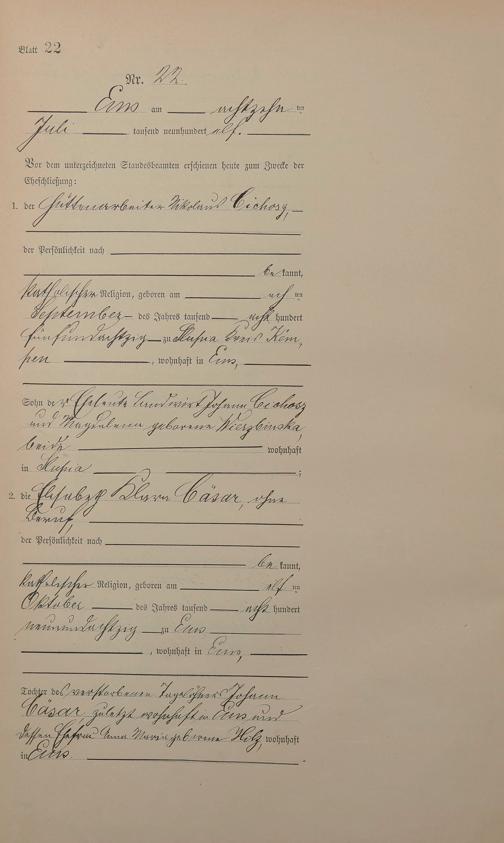 Blatt 22
Nr. 22.
Ems am achtzehn ten
Juli tausend neunhundert elf.
Vor dem unterzeichneten Standesbeamten erschienen heute zum Zwecke der
Eheschließung:
1. der Hüttenarbeiter Nikolaus Cichosz,
der Persönlichkeit nach
be kannt,
katholischer Religion, geboren am ach ten
September des Jahres tausend acht hundert
fünfundachtzig zu Kreis Kem-
pen, wohnhaft in Ems,
Sohn der Eheleute Landwirt Johann Cichosz
und Magdalena geborene Wierzbinska,
beide wohnhaft
in ;
2. die Elisabeth Klara Cäsar, ohne
Beruf,
der Persönlichkeit nach
be kannt,
katholischer Religion, geboren am elf ten
Oktober des Jahres tausend acht hundert
neunundachtzig zu Ems
, wohnhaft in Ems,
Tochter des verstorbenen Tagelöhners Johann
Cäsar, zuletzt wohnhaft in Ems und
dessen Ehefrau Anna Maria geborene wohnhaft
in Ems